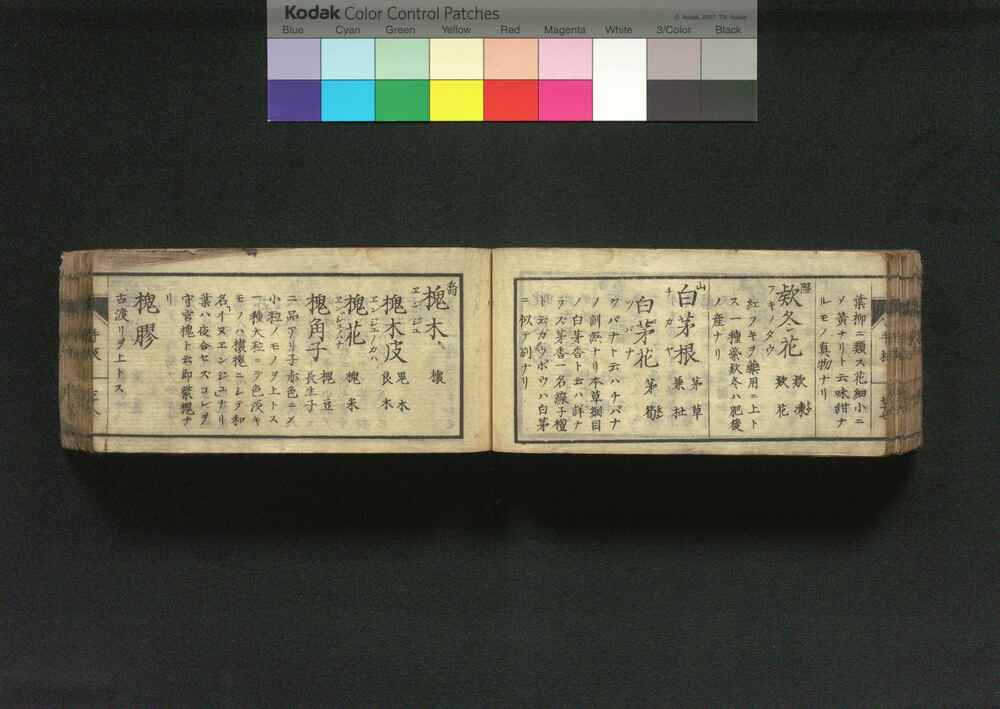 Kodak Color Control Patches
Blue Cyan Green Yellow Red Magenta White 3/Color Black
葉柳ニ類ス花細小ニ
ソ黄ナリト云味甜ナ
ルモノ真物ナリ
款冬花 款凍
フキノタウ 款花
紅フキヲ薬用ニ上ト
ス一種紫款冬ハ肥後
ノ産ナリ
山
白茅根 茅草
チガヤ 兼杜
白茅花 茅筍
ツバナ
ツバナト云ハチバナ
ノ訓誤ナリ本草綱目
ノ白茅香ト云ハ詳ナ
ラズ茅香一名線子檀
ト云カウボウハ白茅
ニ似テ別ナリ
槐木 櫰
ヱンジユ
槐木皮
ヱンジユノカハ
槐花 槐米
槐角子 槐豆
長生子
二品アリ子赤色ニメ
小粒ノモノヲ上トス
一種大粒ニテ色淡キ
モノハ櫰槐ニシテ和
名イヌヱンジユナリ
葉ハ夜合セズコレヲ
守宮槐ト云即紫槐ナ
リ
槐膠
古渡リヲ上トス